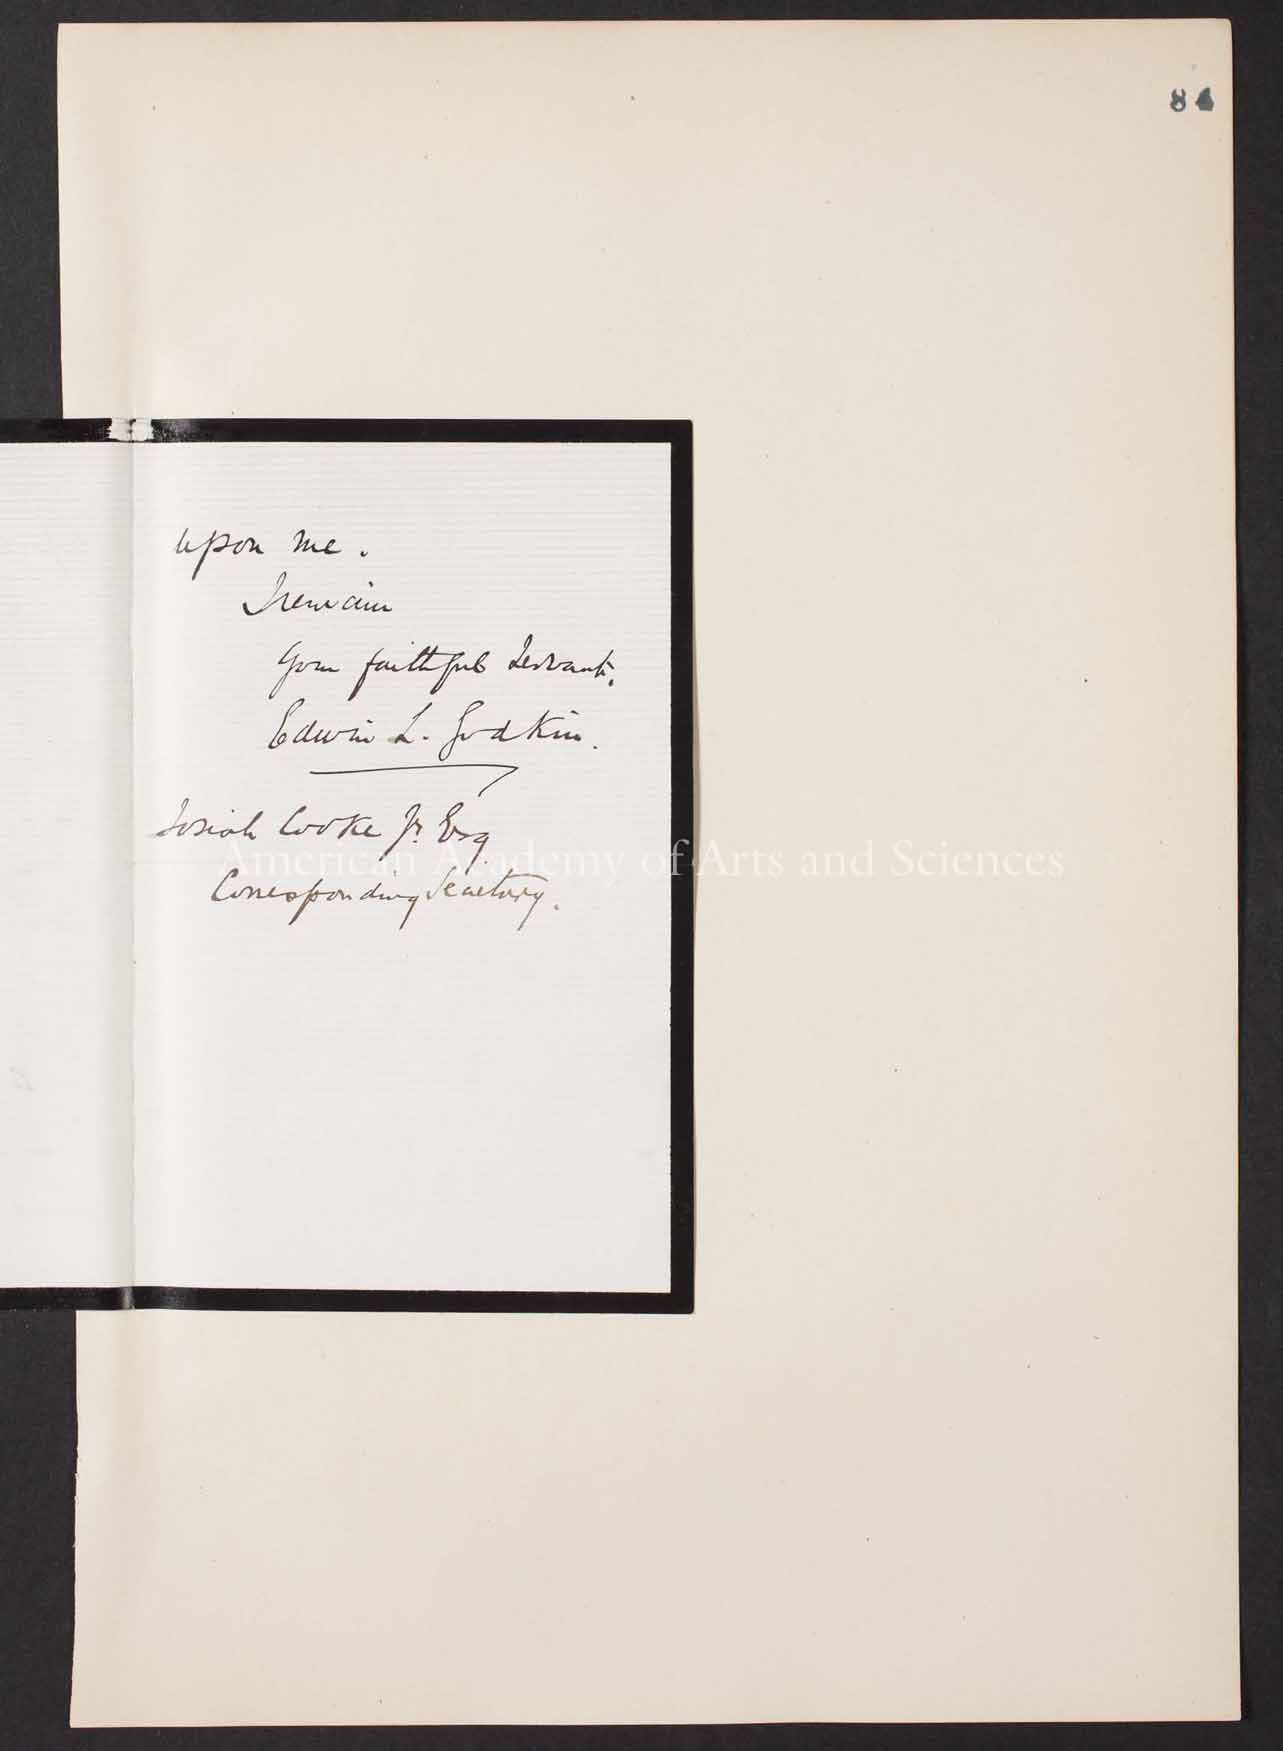 84
upon me.
I remain
Your faithful Servant.
Edwin L. Godkin.
Josiah Cooke Jr. Esq
American Academy of Arts and Sciences
Corresponding Secretary.